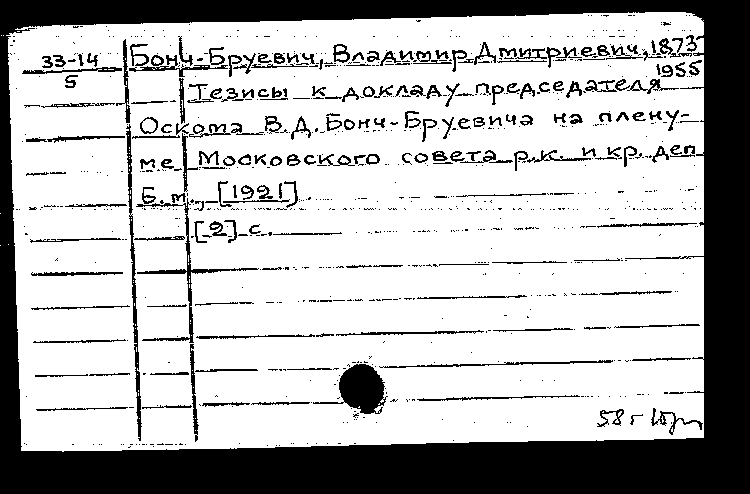 33-14 Бонч-Бруевич, Владимир Дмитриевич, 1873
5 1955
Тезисы к докладу председателя
Оскома В.Д. Бонч-Бруевича на плену-
ме Московского совета р.к. и кр. деп
Б.м., [1921].
[2] с.
58г